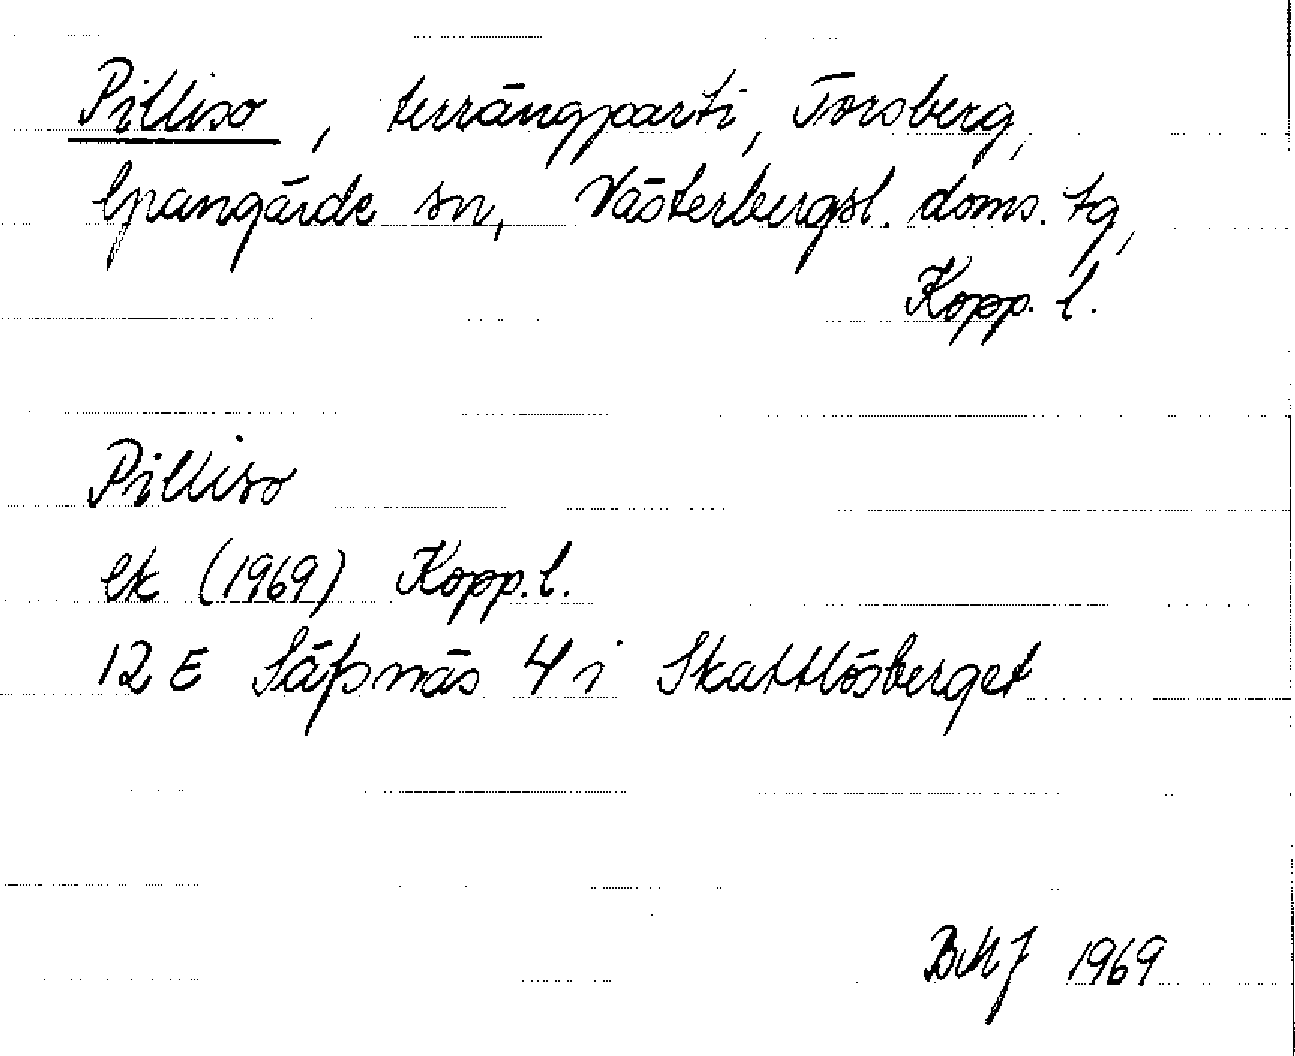 Pilliso, terrängparti, Torsberg,
Grangärde sn, Västerbergsl. doms. tg,
Kopp. l.
Pilliso
ek (1969) Kopp. l.
12 E Säfsnäs 4 i Skattlösberget
BMJ 1969